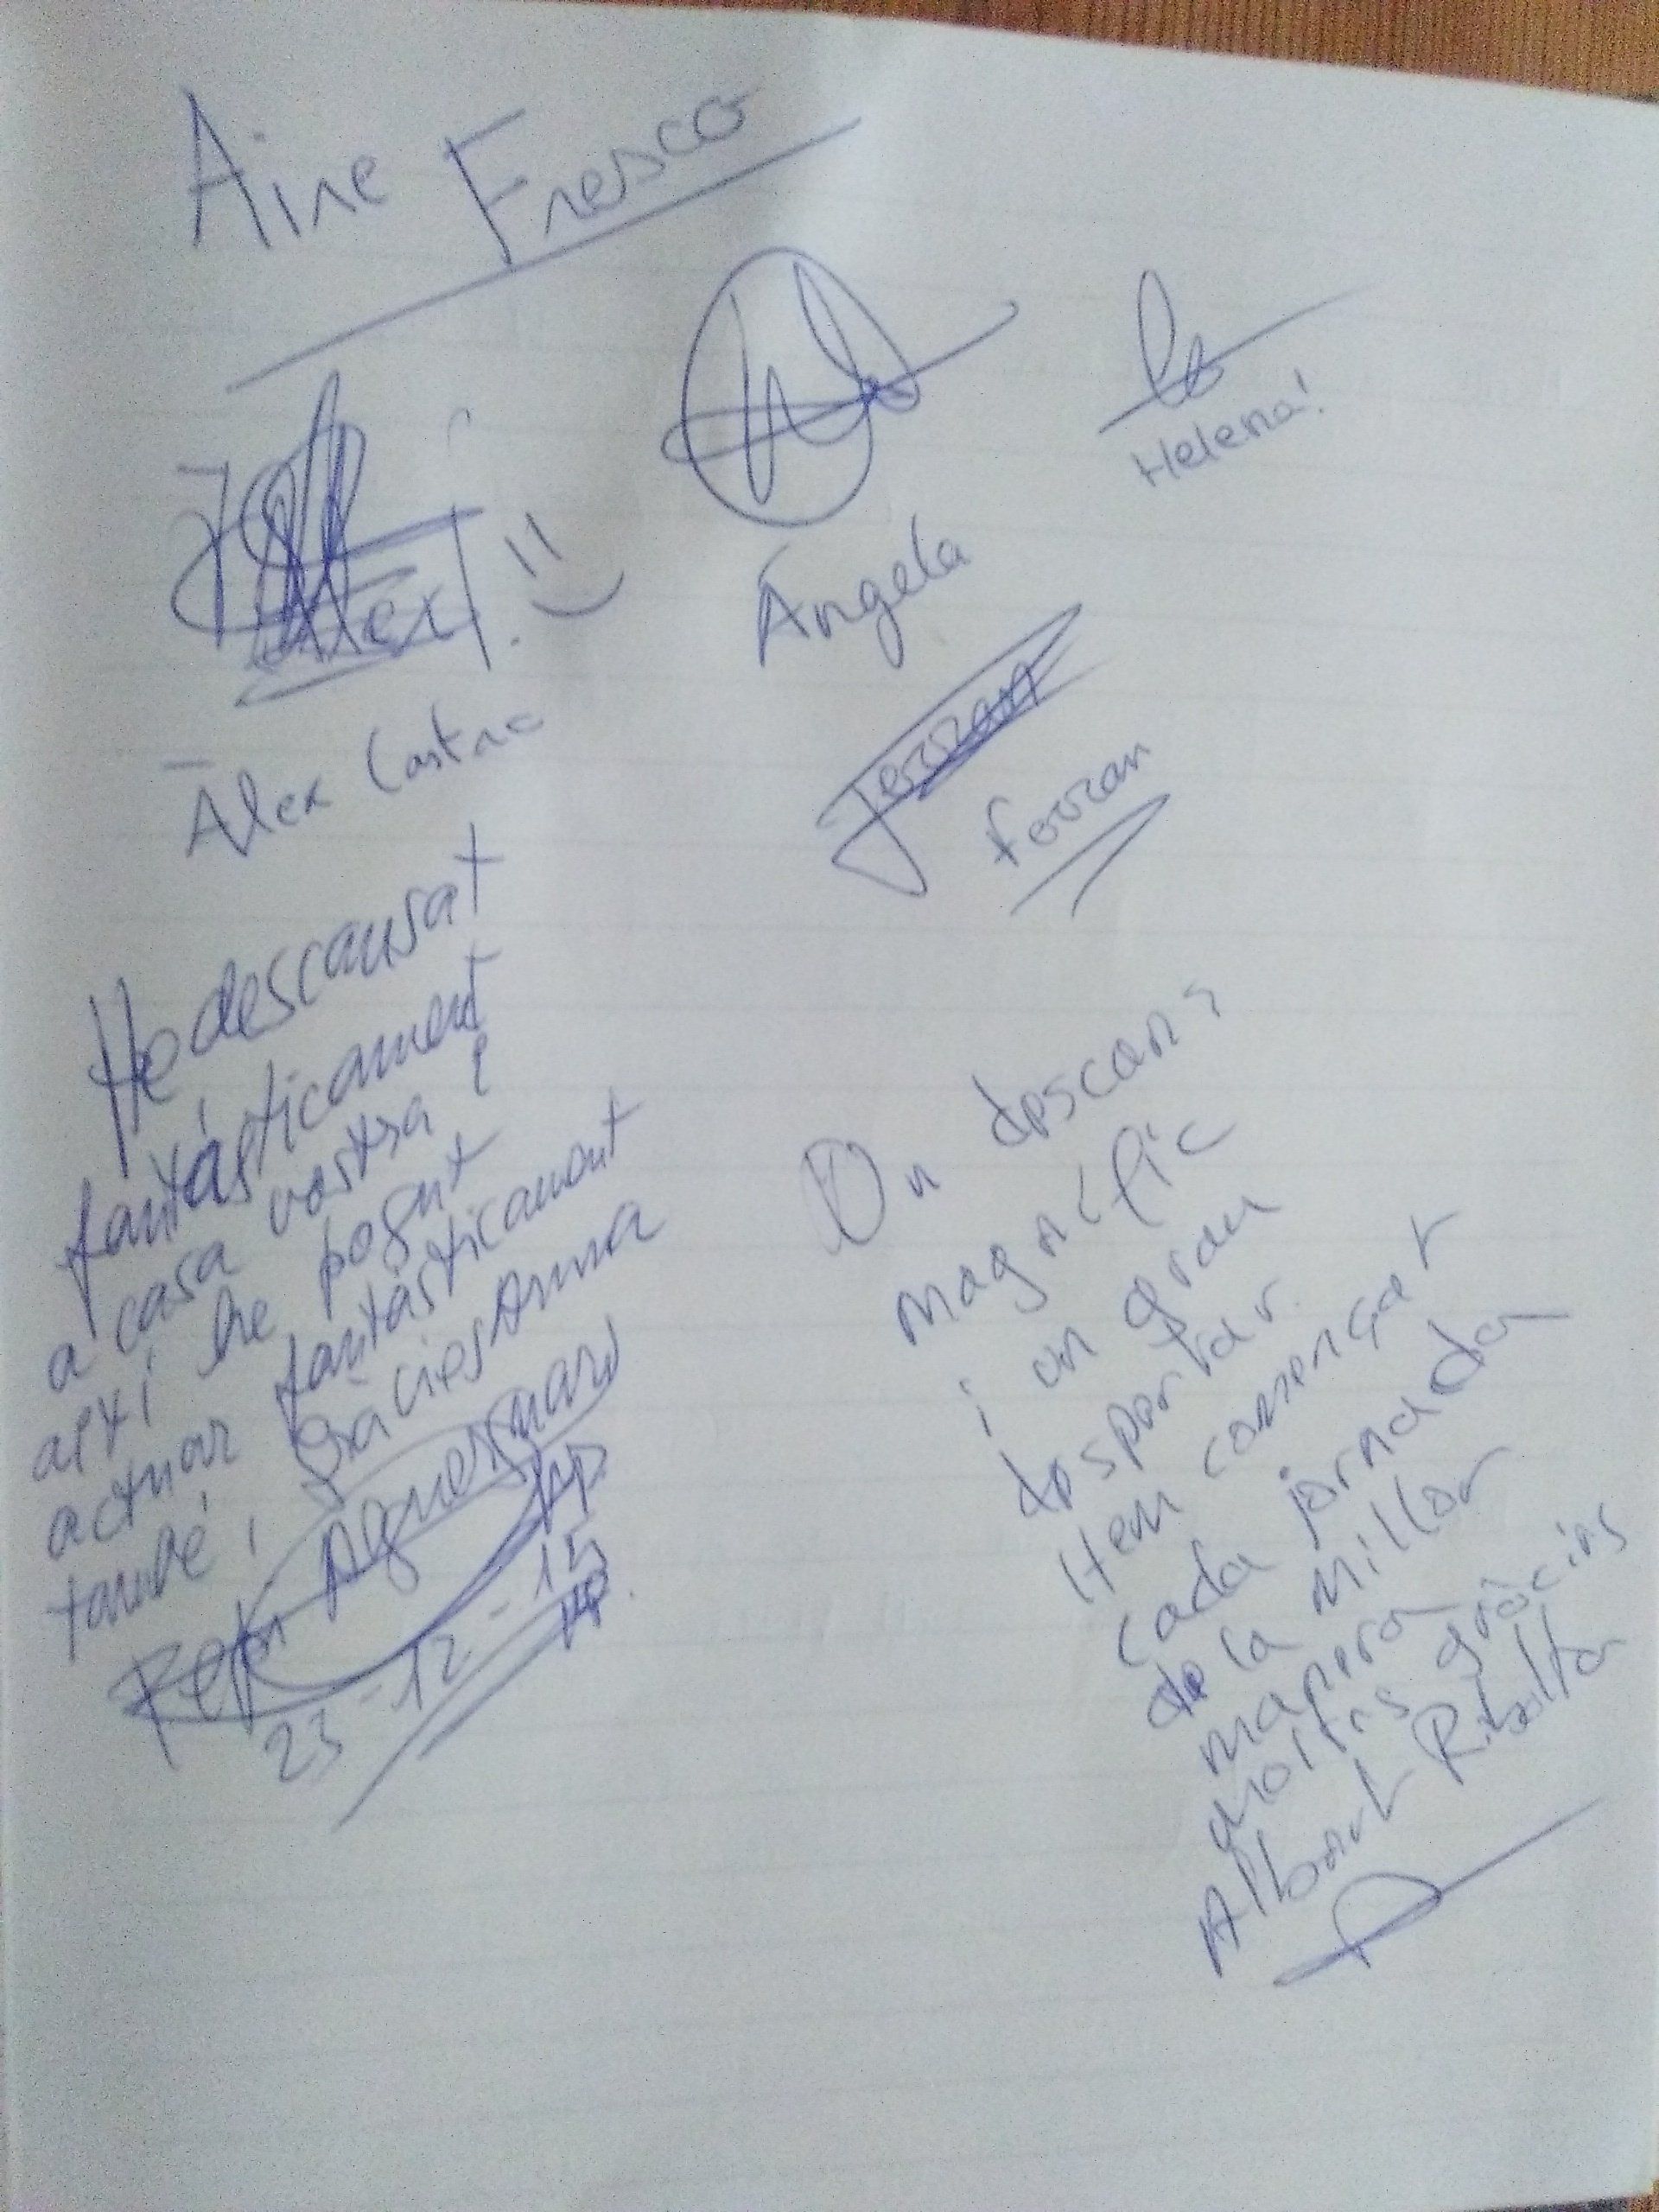 Aire Fresco
Helena!
Àlex!
Àngela
Àlex Castro
Ferran
Ferran
He descansat
fantàsticament
a casa vostra i
així he pogut
actuar fantàsticament
també, gràcies Anna
Pep
23-12-15
Un descans
magnífic
i un gran
despertar.
Hem començat
cada jornada
de la millor
manera
moltes gràcies
Albert Ribalta